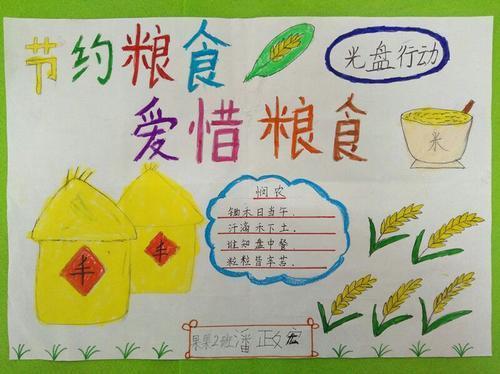 节约粮食
光盘行动
爱惜粮食
米
悯农
锄禾日当午.
汗滴禾下土.
谁知盘中餐.
粒粒皆辛苦.
丰
丰
果果2班潘政宏